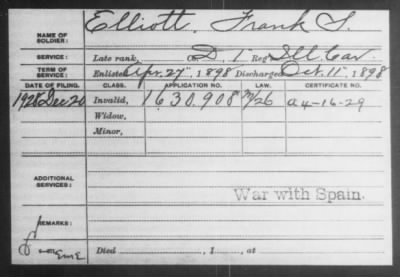 NAME OF SOLDIER: Elliott, Frank S.
SERVICE: Late rank, Co. D, 1" Reg't Ill Cav.
TERM OF SERVICE: Enlisted Apr. 27", 1898 Discharged Oct. 11", 1898
DATE OF FILING. CLASS. APPLICATION NO. LAW. CERTIFICATE NO.
1928 Dec 20 Invalid, 1630908 a4-16-29
Widow,
Minor,
ADDITIONAL SERVICES:
War with Spain.
REMARKS:
Died , 1 , at